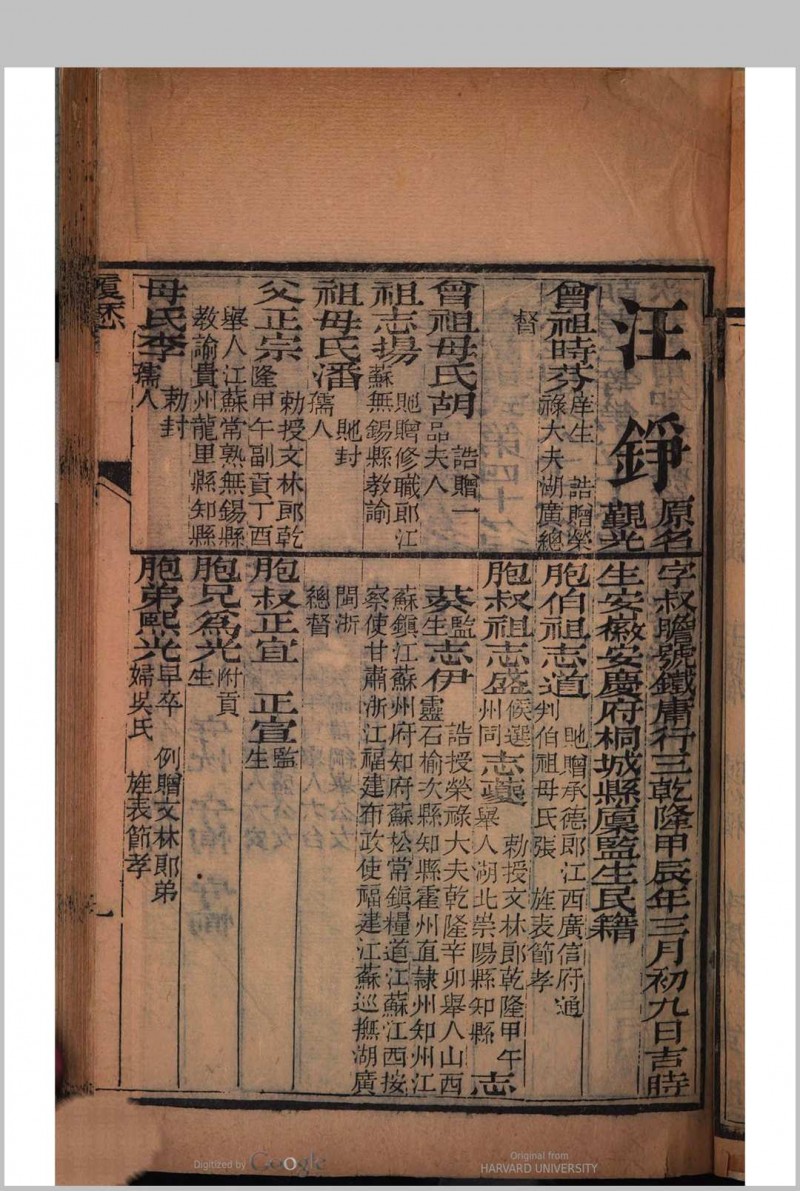 汪錚
原名
覲光
曾祖時芬
庠生 誥贈榮
祿大夫湖廣總
督
曾祖母氏胡
誥贈一
品夫人
祖志揚
貤贈修職郎江
蘇無錫縣教諭
祖母氏潘
貤封
孺人
父正宗
勅授文林郎乾
隆甲午副貢丁酉
舉人江蘇常熟無錫縣
教諭貴州龍里縣知縣
母氏李
勅封
孺人
字叔瞻號鐵庸行三乾隆甲辰年三月初九日吉時
生安徽安慶府桐城縣廩監生民籍
胞伯祖志道
貤贈承德郎江西廣信府通
判伯祖母氏張 旌表節孝
胞叔祖志盛
候選
州同
志夔
勅授文林郎乾隆甲午
舉人湖北崇陽縣知縣
志
葵
監
生
志伊
誥授榮祿大夫乾隆辛卯舉人山西
靈石榆次縣知縣霍州直隸州知州江
蘇鎮江蘇州府知府蘇松常鎮糧道江蘇江西按
察使甘肅浙江福建布政使福建江蘇巡撫湖廣
閩浙
總督
胞叔正宜 正宣
監
生
胞兄為光
附貢
生
胞弟熙光
早卒 例贈文林郎弟
婦吳氏 旌表節孝
履歷
一
Digitized by Google
Original from
HARVARD UNIVERSITY